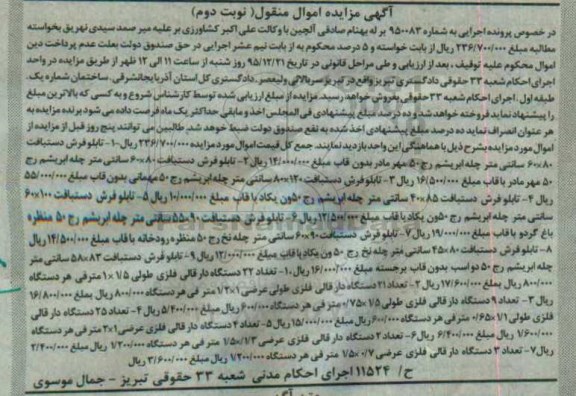 آگهی مزایده اموال منقول( نوبت دوم)
در خصوص پرونده اجرایی به شماره ۹۵۰۰۸۳ بر له بهنام صادقی آلچین با وکالت علی اکبر کشاورزی بر علیه میر صمد سیدی نهریق بخواسته
مطالبه مبلغ ۲۳۶/۷۰۰/۰۰۰ ریال از بابت خواسته و ۵ درصد محکوم به از بابت نیم عشر اجرایی در حق صندوق دولت بعلت عدم پرداخت دین
اموال محکوم علیه توقیف ، بعد از ارزیابی و طی مراحل قانونی در تاریخ ۹۵/۱۲/۲۱ روز شنبه از ساعت ۱۱ الی ۱۲ ظهر از طریق مزایده در واحد
اجرای احکام شعبه ۳۳ حقوقی دادگستری تبریز واقع در تبریز سربالائی ولیعصر . دادگستری کل استان آذربایجانشرقی . ساختمان شماره یک .
طبقه اول . اجرای احکام شعبه ۳۳ حقوقی بفروش خواهد رسید. مزایده از مبلغ ارزیابی شده توسط کارشناس شروع و به کسی که بالاترین مبلغ
را پیشنهاد نماید فروخته خواهد شد و ده درصد مبلغ پیشنهادی فی المجلس اخذ و مابقی حداکثر یک ماه فرصت داده می شود برنده مزایده به
هر عنوان انصراف نماید ده درصد مبلغ پیشنهادی اخذ شده به نفع صندوق دولت ضبط خواهد شد. طالبین می توانند پنج روز قبل از مزایده از
اموال مورد مزایده بشرح ذیل با هماهنگی این واحد بازدید نمایند. جمع کل قیمت اموال مورد مزایده ۲۳۶/۷۰۰/۰۰۰ ریال ۱- تابلو فرش دستبافت
۶۰×۸۰ سانتی متر چله ابریشم رج ۵۰ مهر مادر بدون قاب مبلغ ۱۴/۰۰۰/۰۰۰ ریال ۲- تابلو فرش دستبافت ۸۰×۶۰ سانتی متر چله ابریشم رج
۵۰ مهر مادر با قاب مبلغ ۱۶/۵۰۰/۰۰۰ ریال ۳- تابلو فرش دستبافت ۱۲۰×۸۰ سانتی متر چله ابریشم رج ۵۰ مهمانی بدون قاب مبلغ ۵۵/۰۰۰/۰۰۰
ریال ۴- تابلو فرش دستبافت ۸۵×۴۰ سانتی متر چله ابریشم رج ۵۰ ون یکاد با قاب مبلغ ۱۰/۰۰۰/۰۰۰ ریال ۵- تابلو فرش دستبافت ۱۰۰×۶۰
سانتی متر چله ابریشم رج ۵۰ ون یکاد با قاب مبلغ ۱۲/۵۰۰/۰۰۰ ریال ۶- تابلو فرش دستبافت ۹۰×۵۵ سانتی متر چله ابریشم رج ۵۰ منظره
باغ گردو با قاب مبلغ ۱۹/۰۰۰/۰۰۰ ریال ۷- تابلو فرش دستبافت ۹۰×۶۰ سانتی متر چله نخ رج ۵۰ منظره رودخانه با قاب مبلغ ۱۴/۵۰۰/۰۰۰ ریال
۸- تابلو فرش دستبافت ۸۰×۴۵ سانتی متر چله نخ رج ۵۰ ون یکاد با قاب مبلغ ۱۲/۰۰۰/۰۰۰ ریال ۹- تابلو فرش دستبافت ۸۳×۵۸ سانتی متر
چله ابریشم رج ۵۰ دو اسب بدون قاب برجسته مبلغ ۱۶/۰۰۰/۰۰۰ ریال ۱۰- تعداد ۲۲ دستگاه دار قالی فلزی طولی ۱/۵×۱ متر فی هر دستگاه
۸۰۰/۰۰۰ ریال بمبلغ ۱۷/۶۰۰/۰۰۰ ریال ۲- تعداد ۲۱ دستگاه دار قالی فلزی طولی عرضی ۱×۱/۲ متر فی هر دستگاه ۸۰۰/۰۰۰ ریال بملغ ۱۶/۸۰۰/۰۰۰
ریال ۳- تعداد ۹ دستگاه دار قالی فلزی طولی ۱/۵×۰/۷۵ متر فی هر دستگاه ۶۰۰/۰۰۰ ریال مبلغ ۵/۴۰۰/۰۰۰ ریال ۴- تعداد ۲۵ دستگاه دار قالی
فلزی طولی ۱/۱×۰/۶۵ متر فی هر دستگاه ۶۰۰/۰۰۰ ریال مبلغ ۱۵/۰۰۰/۰۰۰ ریال ۵- تعداد ۴ دستگاه دار قالی فلزی عرضی ۱×۲ متر فی هر دستگاه
۱/۶۰۰/۰۰۰ ریال مبلغ ۶/۴۰۰/۰۰۰ ریال ۶- تعداد ۲ دستگاه دار قالی فلزی عرضی ۱/۳×۱/۵۰ متر فی هر دستگاه ۱/۲۰۰/۰۰۰ ریال مبلغ ۲/۴۰۰/۰۰۰
ریال ۷- تعداد ۳ دستگاه دار قالی فلزی عرضی ۰/۷×۱/۵۰ متر فی هر دستگاه ۱/۲۰۰/۰۰۰ ریال مبلغ ۳/۶۰۰/۰۰۰ ریال
ح/ ۱۱۵۲۴ اجرای احکام مدنی شعبه ۳۳ حقوقی تبریز - جمال موسوی